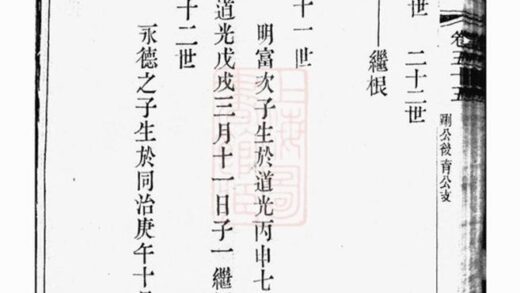 卷五十五
嗣公後育公支
世 二十二世
繼根
十一世
明富次子生於道光丙申七
道光戊戌三月十一日子一繼
十二世
永德之子生於同治庚午十